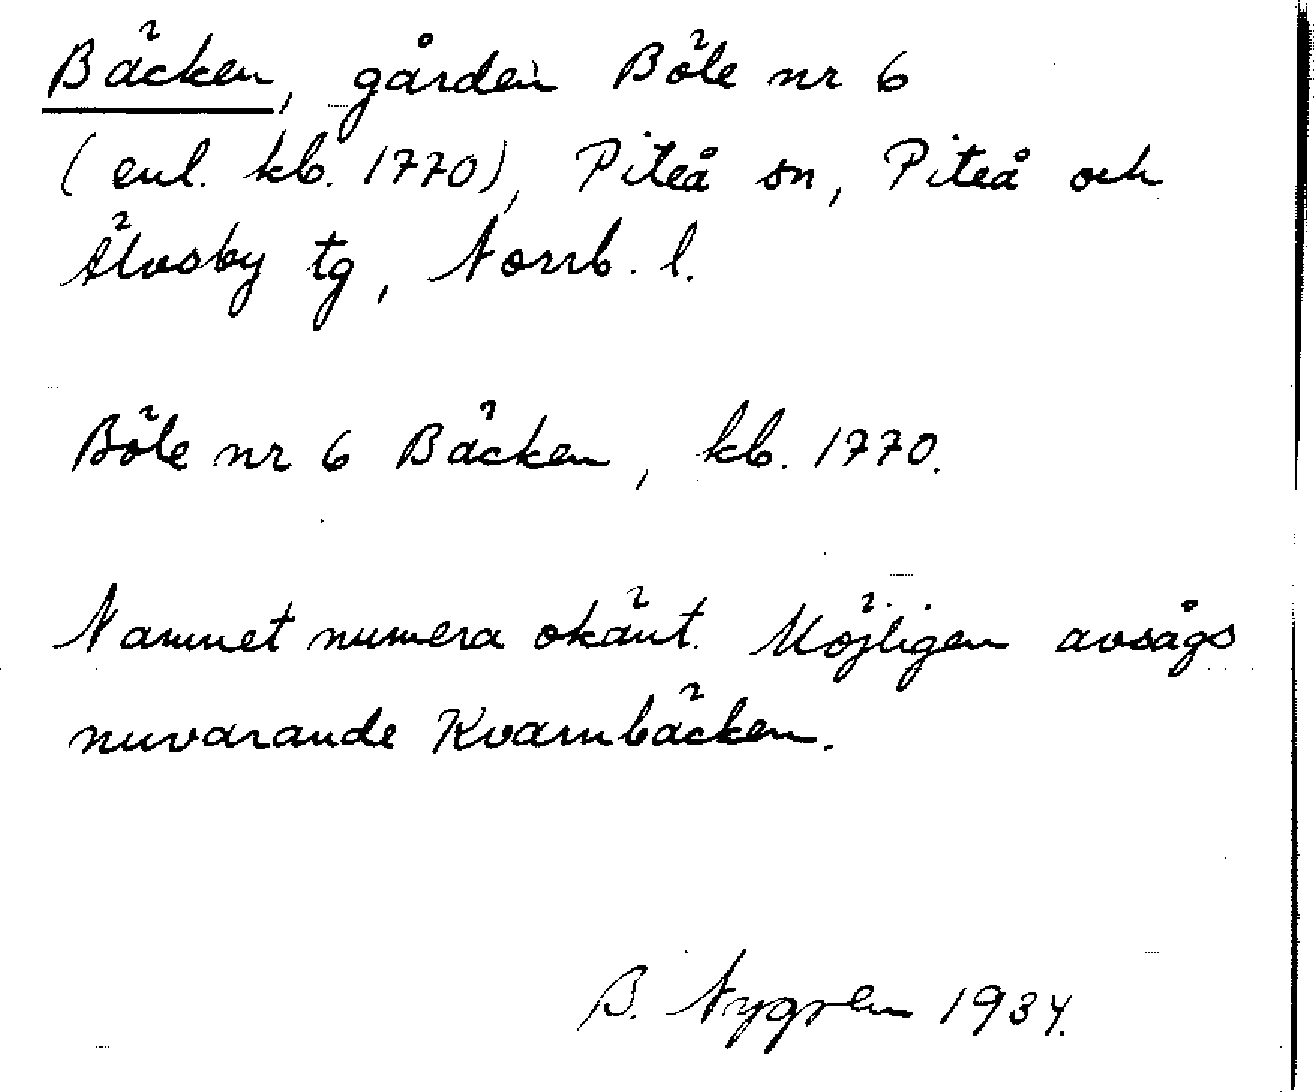 Bäcken, gården Böle nr 6
(enl. kb. 1770), Piteå sn, Piteå och
Älvsby tg, Norrb. l.
Böle nr 6 Bäcken, kb. 1770.
Namnet numera okänt. Möjligen avsågs
nuvarande Kvarnbäcken.
B. Nygren 1934.